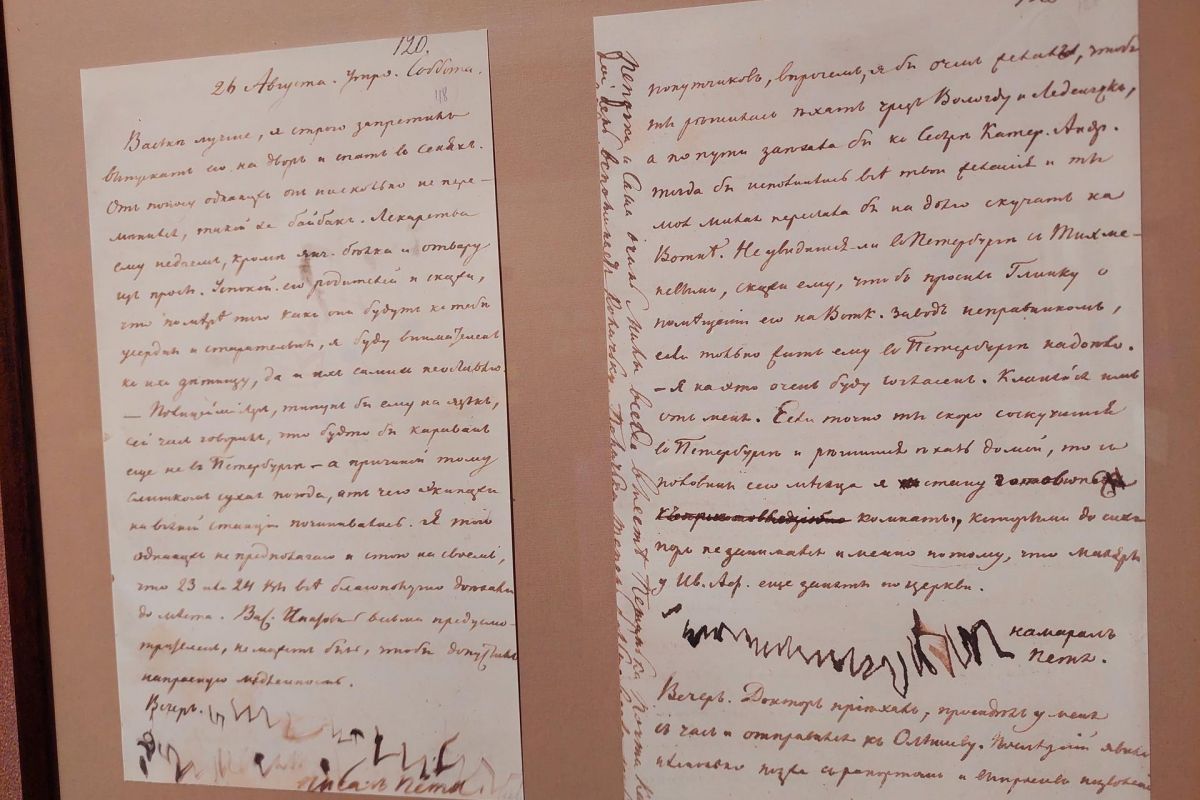 120.
26 Августа. Утро. Суббота.
118
Васькѣ лучше, я строго запретилъ
выпускать его на дворъ и спать въ сеняхъ.
Отъ поносу однакожъ онъ нисколько не пере-
манился, такой же байбакъ. Лекарства
ему не даемъ, кромѣ яич. бѣлка и отвару
изъ просы. Успокой его родителей и скажи,
что по мѣрѣ того какъ они будутъ къ тебѣ
усердны и старательны, я буду внимателенъ
къ ихъ дѣтищу, да и ихъ самихъ не оставлю.
— Полицеймейстеръ, типунъ бы ему на языкъ,
сей часъ говорилъ, что будто бы караванъ
еще не въ Петербургѣ — а причиной тому
слишкомъ сухая погода, отъ чего экипажи
на всякой станціи починивались. Я того
однакожъ не предполагаю и стою на своемъ,
что 23 или 24 вы всѣ благополучно доѣхали
до мѣста. Вас. Ипатовичъ весьма предусмо-
трителенъ, не можетъ быть, чтобы допустилъ
напрасную медленность.
Вечеръ.
писалъ Петя
попутчиковъ, впрочемъ, я бы очень желалъ, чтобъ
ты рѣшилась ѣхать чрезъ Вологду и Леденгскъ,
а по пути заѣхала бы къ Сестрѣ Катер. Андр.
тогда бы исполнились всѣ твои желанія и ты
моя милая перестала бы на долго скучать на
Воткѣ. Не увидишься ли въ Петербургѣ съ Тихме-
невымъ, скажи ему, чтобъ просилъ Глинку о
помѣщеніи его на Вотк. заводъ исправникомъ,
если только жить ему въ Петербургѣ надоѣло.
— Я на это очень буду согласенъ. Кланяйся имъ
отъ меня. Если точно ты скоро соскучишься
въ Петербургѣ и рѣшишься ѣхать домой, то съ
половины сего мѣсяца я стану готовить
комнаты, которыми до сихъ
поръ не занимался именно потому, что маляръ
у Ив. Аф. еще занятъ по церкви.
намаралъ
Петя.
Вечеръ. Докторъ пріѣхалъ, просидѣлъ у меня
съ часъ и отправился къ Олышеву. Послѣдній явился
съ рапортомъ и